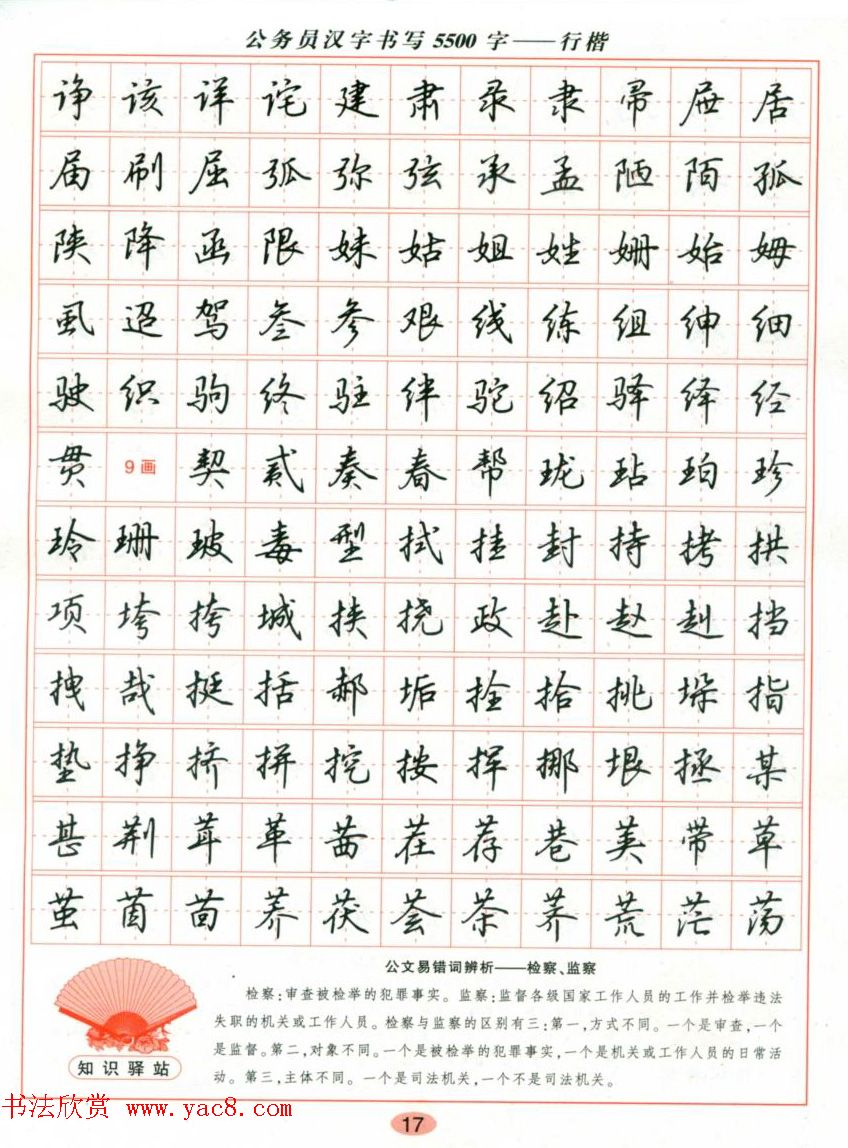 公务员汉字书写5500字——行楷
诤该详诧建肃录隶帚屉居
届刷屈弧弥弦承孟陋陌孤
陕降函限妹姑姐姓姗始姆
虱迢驾叁参艰线练组绅细
驶织驹终驻绊驼绍驿绎经
贯 9画 契贰奏春帮珑玷珀珍
玲珊玻毒型拭挂封持拷拱
项垮挎城挟挠政赴赵赳挡
拽哉挺括郝垢拴拾挑垛指
垫挣挤拼挖按挥挪垠拯某
甚荆茸革茜茬荐巷荚带草
茧茵茴荞茯荟茶荠荒茫荡
公文易错词辨析——检察、监察
检察:审查被检举的犯罪事实。监察:监督各级国家工作人员的工作并检举违法
失职的机关或工作人员。检察与监察的区别有三:第一,方式不同。一个是审查,一个
是监督。第二,对象不同。一个是被检举的犯罪事实,一个是机关或工作人员的日常活
动。第三,主体不同。一个是司法机关,一个不是司法机关。
知识驿站
书法欣赏 www.yac8.com
17